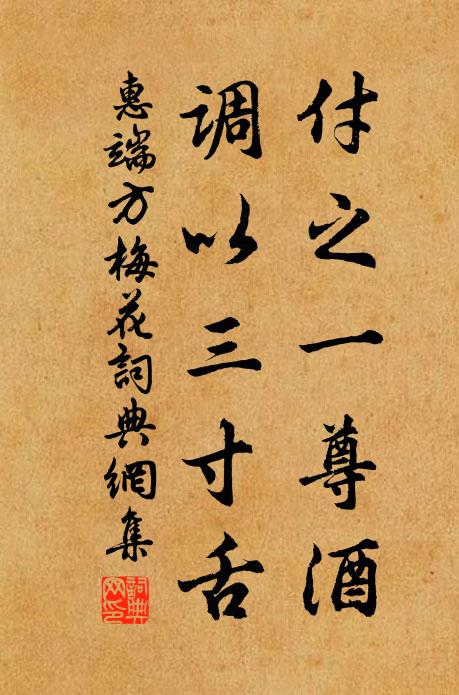 付之一尊酒
調以三寸舌
惠端方梅花詞典網集
詞典網印